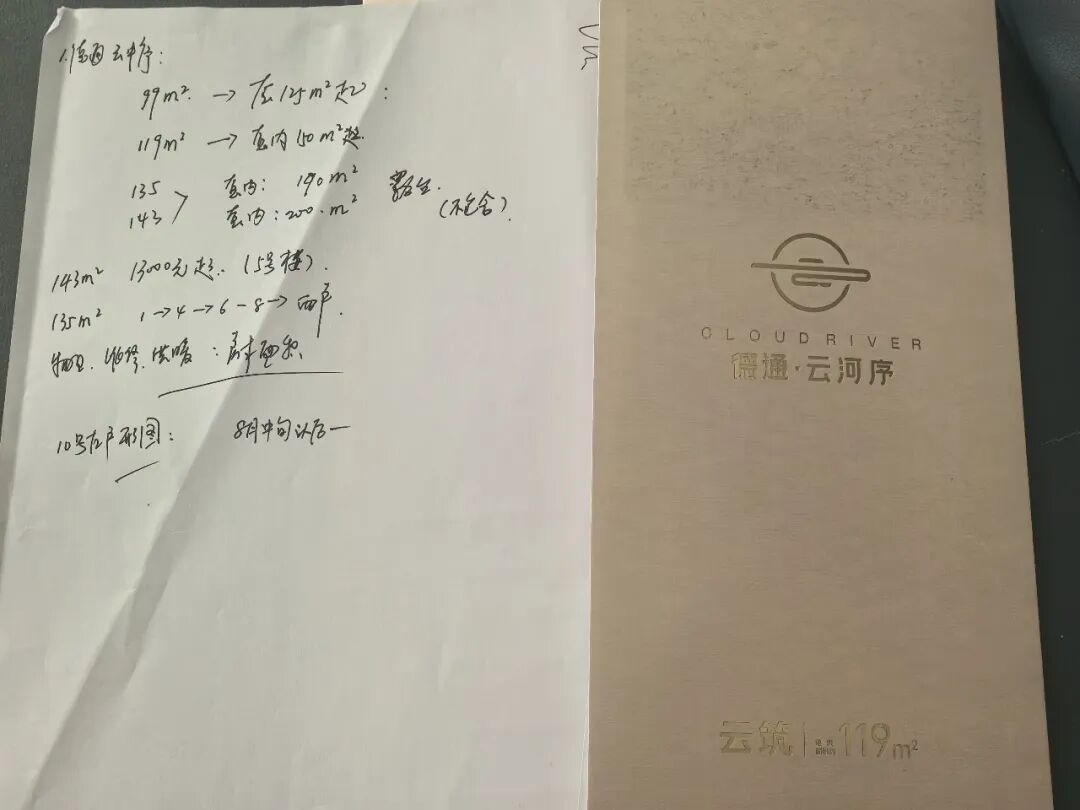 1.德通云中序:
99m² → 套125m²起:
119m² → 套内150m²起
135 套内: 190m²
143 套内:200.m²
(不包含).
143m² 13000元起. (5号楼).
135m² 1→4→6-8→西户.
物业.维修.供暖:面积
10号左户型图: 8月中旬以后一
CLOUDRIVER
德通·云河序
云筑 119m²